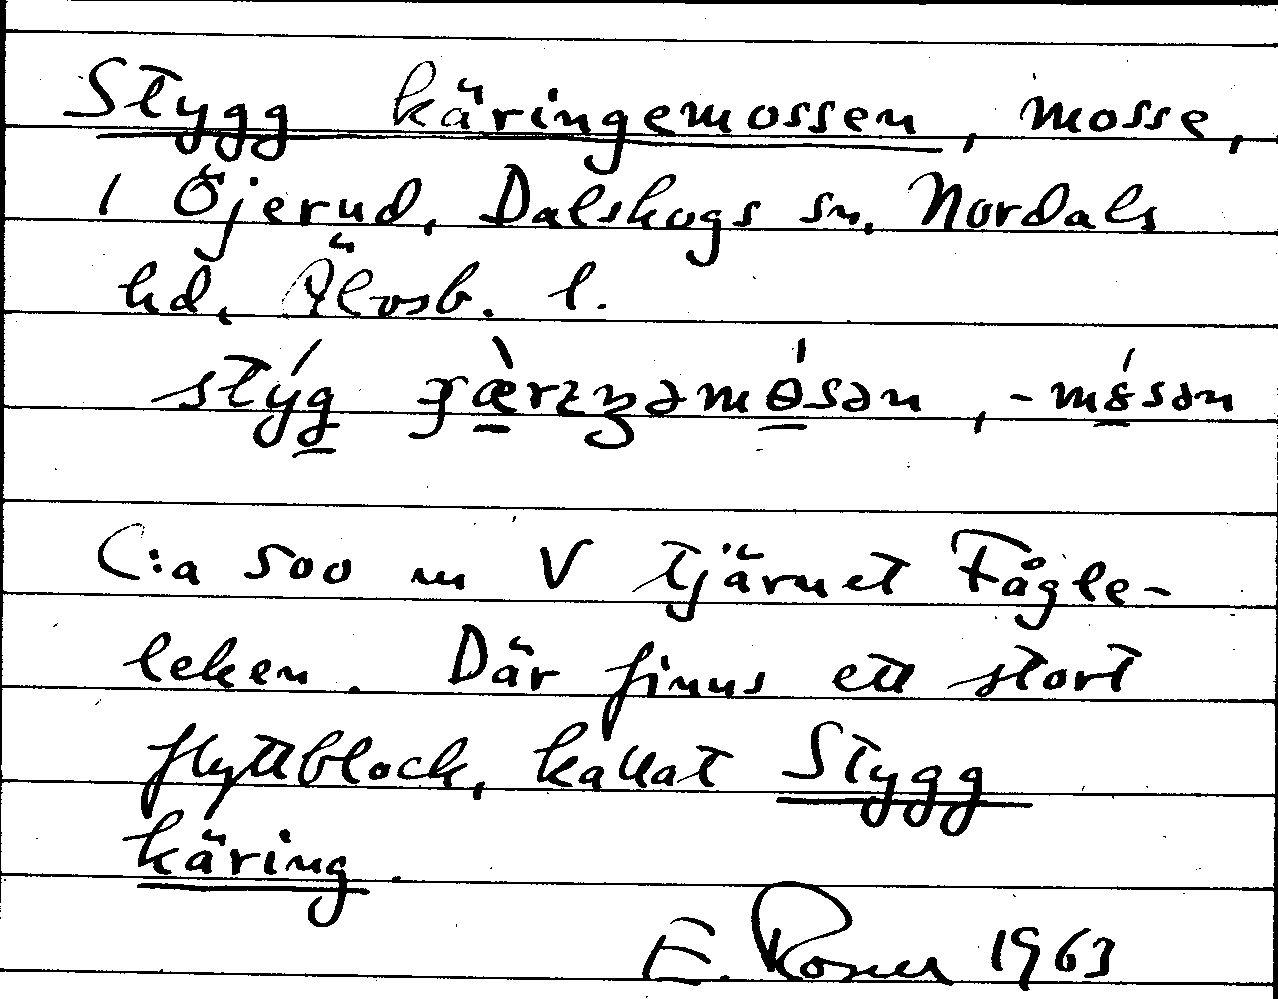 Stygg käringemossen, mosse,
i Öjerud, Dalskogs sn, Nordals
hd, Älvsb. l.
stýg̲ ɟæ̲̀rɪŋəmɵ̲́sən, -mɞ̲́sən
C:a 500 m V tjärnet Fågle-
leken. Där finns ett stort
flyttblock, kallat Stygg
käring.
E. Rosner 1963